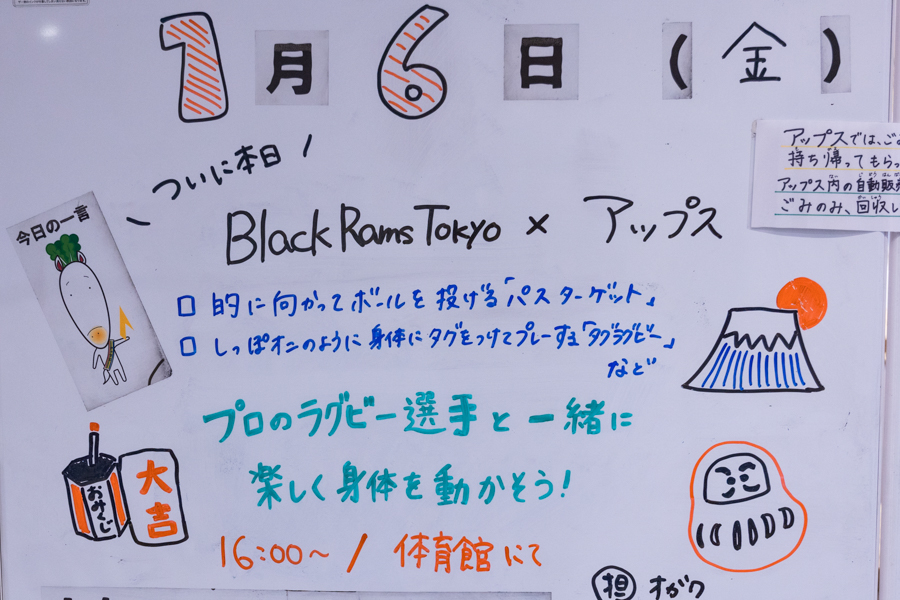 1月6日(金)
ついに本日
今日の一言
Black Rams Tokyo × アップス
□ 的に向かってボールを投げる「パスターゲット」
□ しっぽオニのように身体にタグをつけてプレーする「タグラグビー」
など
プロのラグビー選手と一緒に
楽しく身体を動かそう!
16:00〜 / 体育館にて
おみくじ
大吉
担 すがワ
アップスでは、ご
持ち帰ってもらっ
アップス内の自動販
ごみのみ、回収し